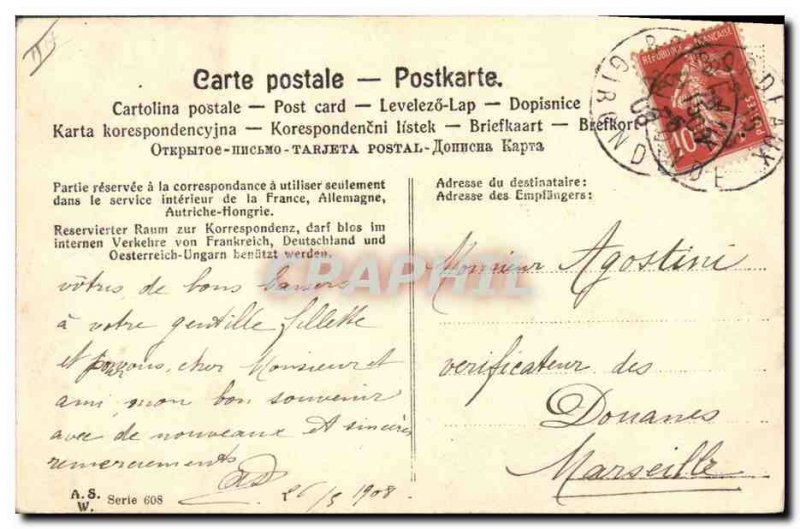 Carte postale — Postkarte.
Cartolina postale — Post card — Levelező-Lap — Dopisnice
Karta korespondencyjna — Korespondenční lístek — Briefkaart — Brefkort
Открытое-письмо-TARJETA POSTAL-Дописна Карта
Partie réservée à la correspondance à utiliser seulement
dans le service intérieur de la France, Allemagne,
Autriche-Hongrie.
Reservierter Raum zur Korrespondenz, darf blos im
internen Verkehre von Frankreich, Deutschland und
Oesterreich-Ungarn benützt werden.
vôtres de bons baisers
à votre gentille fillette
et cher Monsieur et
ami mon bon souvenir
avec de nouveaux et sincères
remerciements
26/5 1908
A.S.
W. Serie 608
Adresse du destinataire:
Adresse des Empfängers:
Monsieur Agostini
verificateur des
Douanes
Marseille
RÉPUBLIQUE FRANÇAISE
POSTES
10
BORDEAUX
GIRONDE
08
CPAPHIL